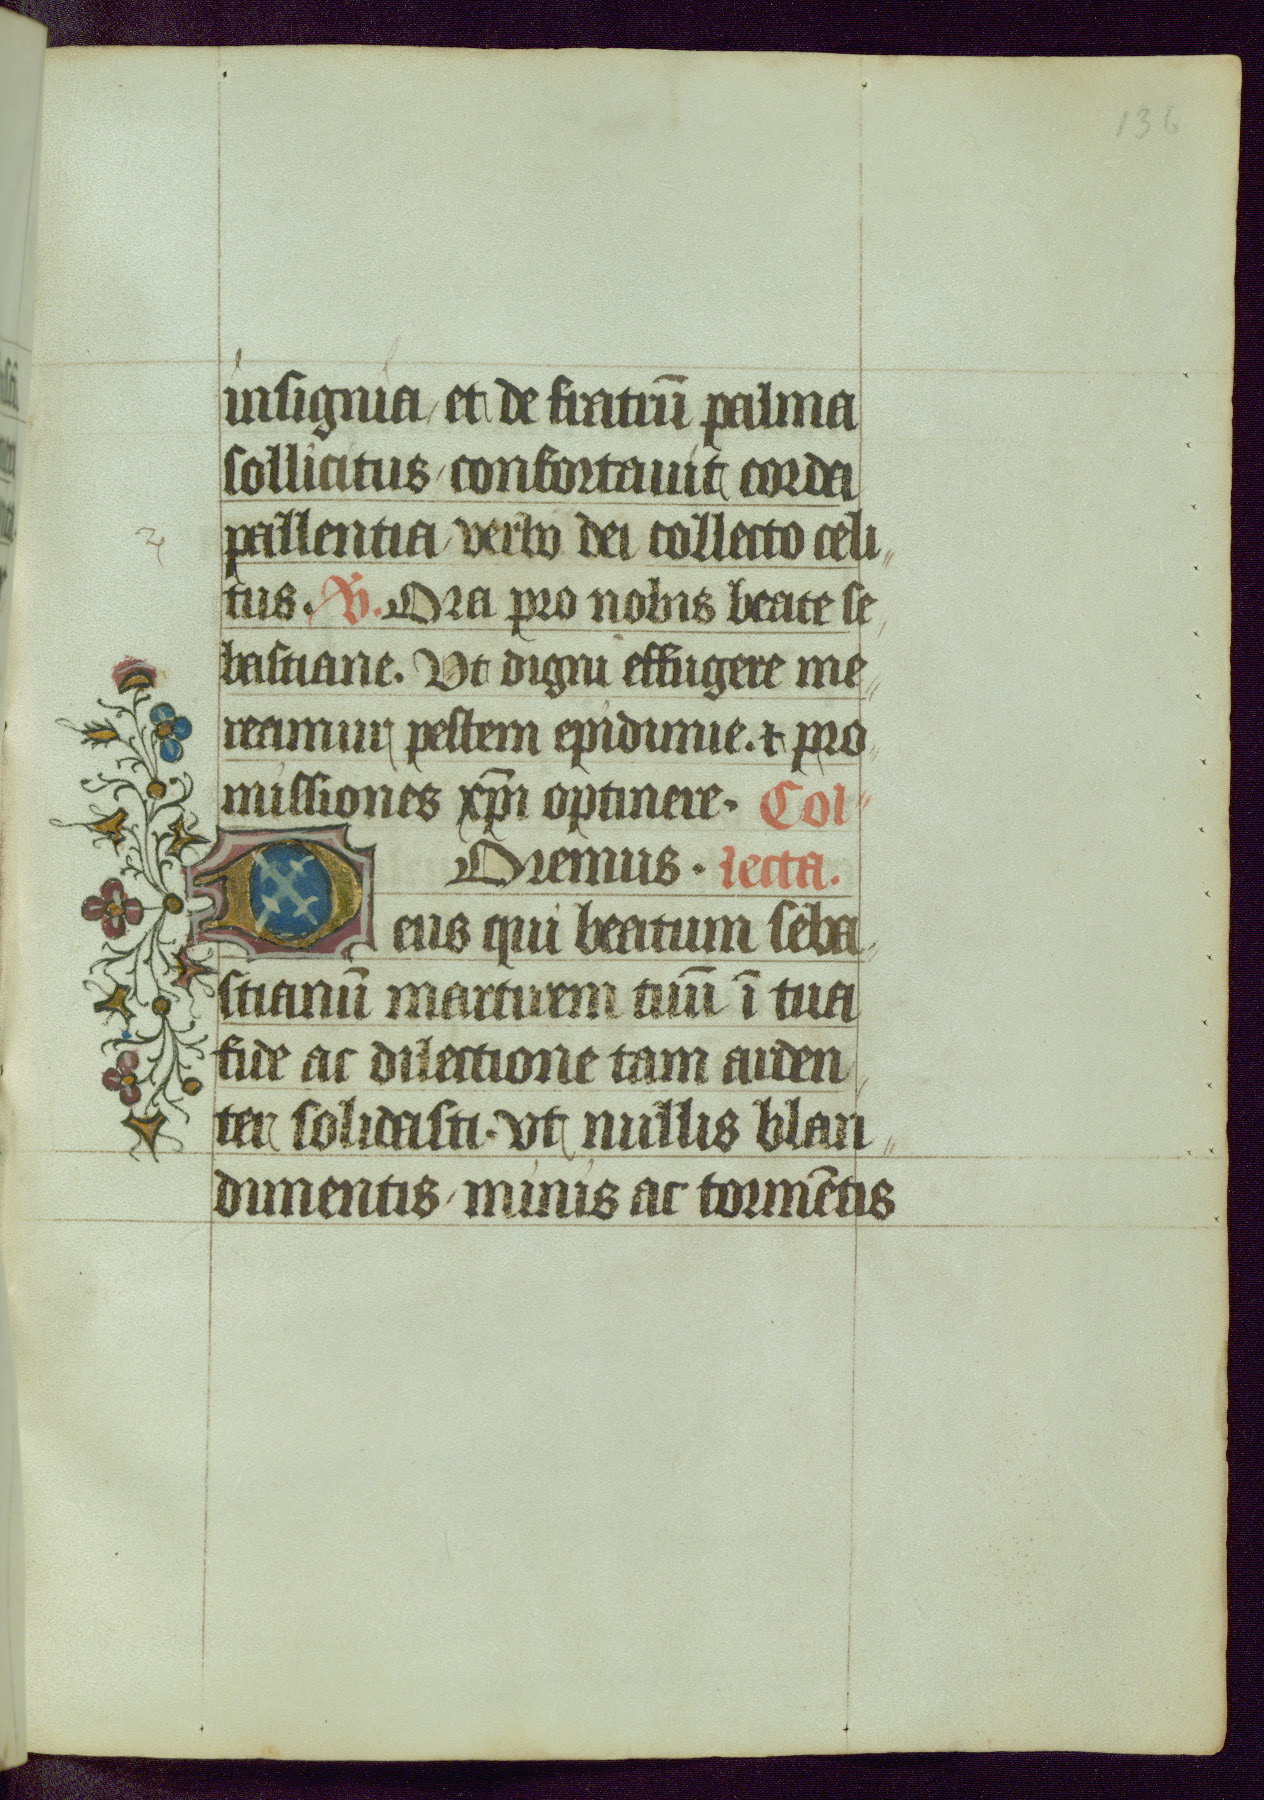 136
insignia / et de fratrū palma
sollicitus / confortauit corda
pallentia / verbo dei collecto celi„
tus. V. Ora pro nobis beate se„
bastiane. Vt digni effugere me„
reamur pestem epidimie. ⁊ pro„
missiones xp̄i optinere. Col„
Oremus. lecta.
Deus qui beatum seba„
stianū martirem tuū ī tua
fide ac dilectione tam arden„
ter solidasti. vt nullis blan„
dimentis / minis ac tormētis